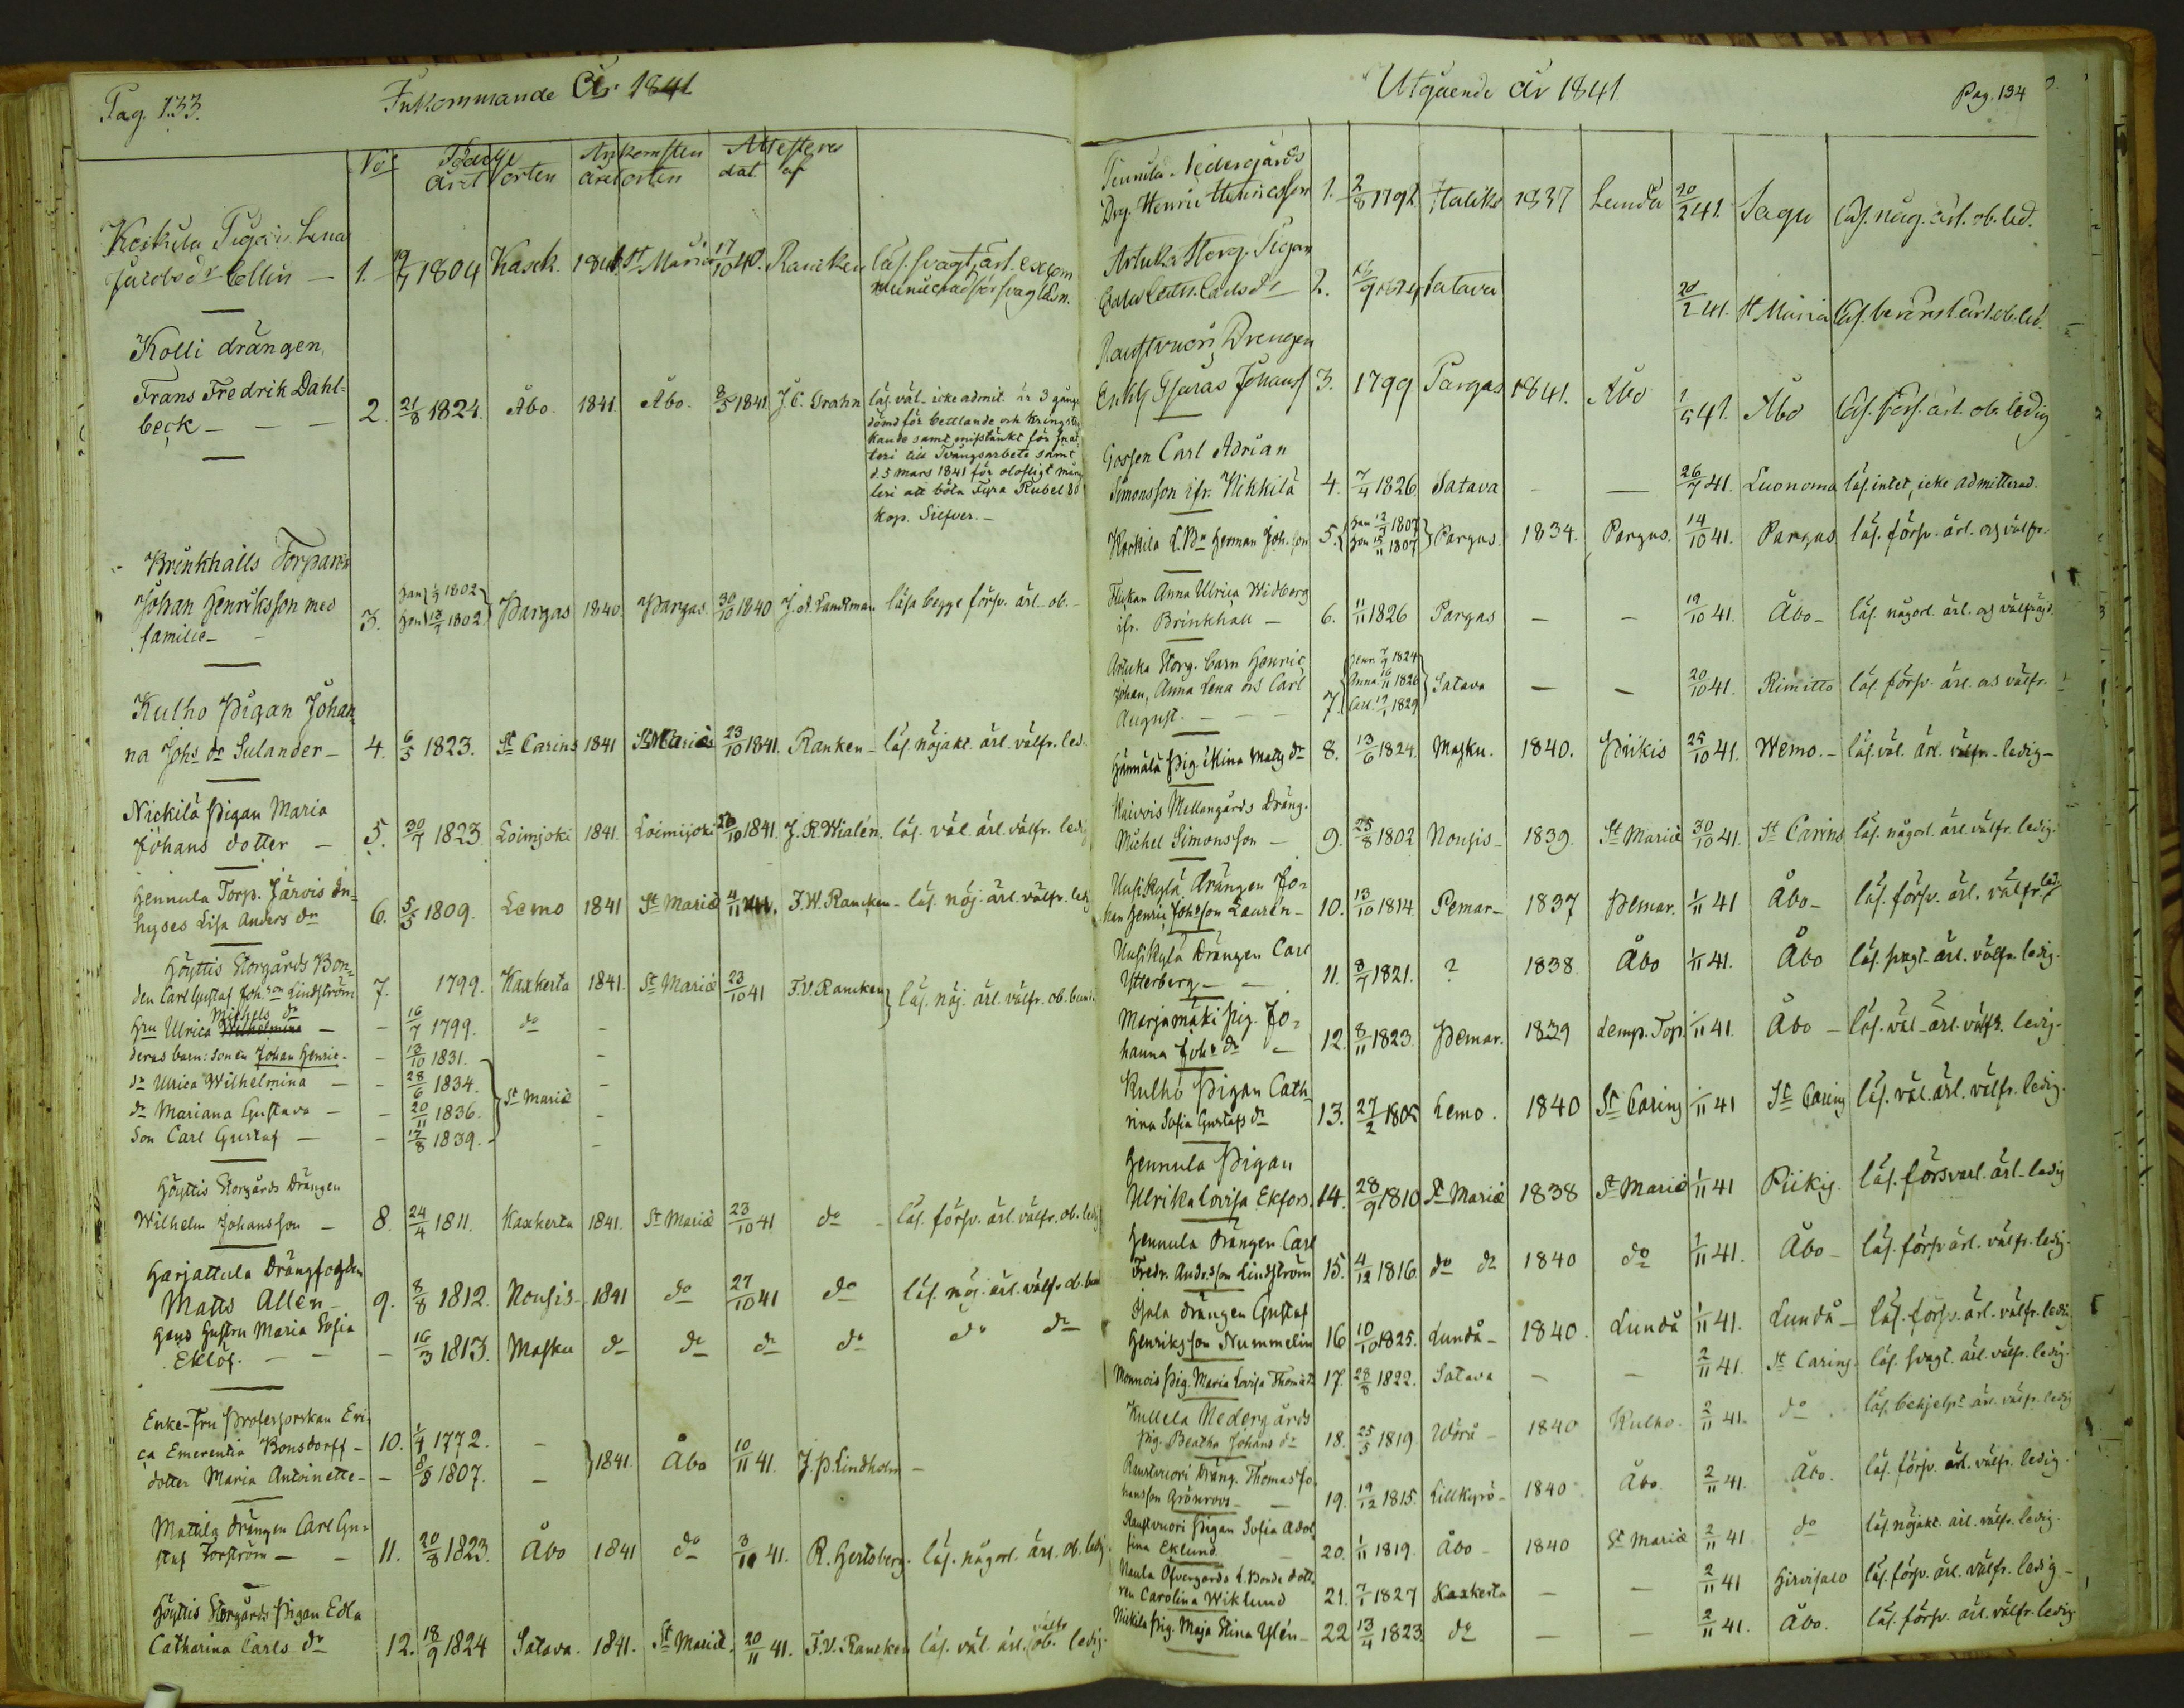 Pag. 133.
Inkommande År 1841
No
Födelse
året orten
Ankomsten
året orten
Attesteras
dat af
Koskula Pigan Lena
Jacobs dr Collin — 1. 19/7 1804 Kasck. 1841 St Mariæ 17/10 40. Rancken läs. svagt, ärl.
för svag läsn.
Kolli drängen,
Frans Fredrik Dahl-
beck — — — 2. 21/8 1824. Åbo. 1841. Åbo. 8/5 1841. J. C. Grahn läs. väl. icke admit. är 3 gånger
dömd för bettlande och kringstry
kande samt misstänkt för snat
teri till Tvångsarbete samt
d. 5 mars 1841 för olofligt
leri att böta Fyra Rubel 80
kop. Silfver. —
Brinkhalls Torparen
Johan Henriksson med
familie — 3. han 1802 hon 13/7 1802. Pargas 1840. Pargas. 30/10 1840 J. A. Landtman läsa begge försv. ärl. ob. —
Kulho Pigan Johan
na Johs dr Sulander — 4. 6/5 1823. St Carins 1841 St Mariæ 23/10 1841. Ranken — läs. nöjakt. ärl. välfr. led.
Nickilä Pigan Maria
Johans dotter — 5. 30/7 1823 Loimjoki 1841. Loimijoki 1841. J. R. Wialén. läs. väl. ärl. välfr. ledig
Hennula Torp. Järvis In-
hyses Lisa Anders dr 6. 5/5 1809. Lemo 1841 St Mariæ 4/11 41. F. W. Rancken — läs. nöj. ärl. välfr. ledig
Höyttis Storgårds Bon-
den Carl Gustaf Johsson Lindström 7. 1799. Kaxkerta 1841. St Mariæ 23/10 41 F. V. Rancken läs. nöj. ärl. välfr. ob.
Michels dr
Hru Ulrica Wilhelmina — — 16/7 1799. do —
deras barn: sonen Johan Henric — — 13/10 1831. —
dr Ulrica Wilhelmina — — 28/6 1834. St Mariæ —
dr Mariana Gustava — — 20/11 1836. —
Son Carl Gustaf — — 17/8 1839. —
Höyttis Storgårds drängen
Wilhelm Johansson — 8. 24/4 1811. Kaxkerta 1841. St Mariæ 23/10 41 do — läs. försv. ärl. välfr. ob. ledig
Harjattula Drängfogden
Matts Allén — 9. 8/8 1812. Nousis — 1841 do 27/10 41 do läs. nöj. ärl. välfr. ob.
Hans Hustru Maria Sofia
Eklöf. — — — 16/3 1813. Masku do do do do do do
Enke-Fru Professorskan Eri-
ca Emerentia Bonsdorff — 10. 1/4 1772. — 1841. Åbo 10/11 41. J. P. Lindholm —
dotter Maria Antoinette — — 8/8 1807. —
Mattila drängen Carl Gu-
staf Forström — — 11. 20/8 1823. Åbo 1841 do 3/10 41. R. Hertsberg. läs. någorl. ärl. ob. ledig.
Höyttis Storgårds Pigan Edla
välfr
Catharina Carls dr 12. 18/9 1824 Satava. 1841. St Mariæ. 20/11 41. F. V. Rancken läs. väl. ärl. ob. ledig
Utgående år 1841.
Pag. 134
Nedergårds
Drg. Henric Henricsson 1. 2/8 1792 Haliko 1837 Lunda 20/2 41. Sagu läs. någ. ärl. ob. led.
Artuka Storg. Pigan
Edla Cath. Carlsdr 2. 18/9 1824 Satava 20/2 41. St Maria läs. ärl. ob. led.
Raustvuori Drengen
Johans 3. 1799 Pargas 1841. Åbo 41. Åbo läs. förs. ärl. ob. ledig
Gossen Carl Adrian
Simonsson ifr. Nikkilä 4. 7/4 1826 Satava — — 26/7 41. Luonoma läs. intet, icke admitterad.
Kockila L. Bn Herman Joh.son 5. Han 1807 Hon 1807 Pargas 1834. Pargas. 14/10 41. Pargas läs. försv. ärl. och välfr.
Flickan Anna Ulrica Widberg
ifr. Brinkhall — 6. 11/11 1826 Pargas — — 19/10 41. Åbo — läs. någorl. ärl. och välfräjd.
Artuka Storg. barn Henric
Johan, Anna Lena och Carl
August. — — — 7. Henr. 1824 Anna. 16/11 1826 Carl. 1829 Satava — — 20/10 41. Rimitto läs. försv. ärl. och välfr.
Härmälä Pig. Stina Matts dr 8. 13/6 1824. Masku. 1840. Piikis 25/10 41. Wemo. — läs. väl. ärl. välfr. ledig —
Kaivois Mellangårds dräng.
Michel Simonsson — 9. 25/8 1802 Nousis — 1839. St Mariæ 30/10 41. St Carins läs. någorl. ärl. välfr. ledig.
Uusikylä drängen Jo-
han Henric Johsson Laurén — 10. 13/10 1814. Pemar — 1837 Pemar. 1/11 41 Åbo — läs. försv. ärl. välfr. led.
Uusikylä Drängen Carl
Ytterberg — — 11. 8/7 1821. ? 1838. Åbo 1/11 41. Åbo läs. svagt. ärl. välfr. ledig.
Marjamäki Pig. Jo-
hanna Johs dr — 12. 8/11 1823. Pemar. 1839 Lemp. Top. 1/11 41. Åbo — läs. väl. ärl. välfr. ledig.
Kulho Pigan Cath-
rina Sofia Gustafs dr 13. 27/2 1805 Lemo. 1840 St Carins 1/11 41 St Carins läs. väl. ärl. välfr. ledig.
Hennula Pigan
Ulrika Lovisa Ekfors. 14. 28/9 1810 St Mariæ 1838 St Mariæ 1/11 41 Piikis. läs. försvarl. ärl. ledig
Hennula drängen Carl
Fredr. Andrsson Lindström 15. 4/12 1816. do do 1840 do 1/11 41. Åbo — läs. försv. ärl. välfr. ledig.
Isula drängen Gustaf
Henriksson Nummelin 16 10/10 1825. Lundå — 1840. Lundå 1/11 41. Lundå — läs. försv. ärl. välfr. ledig
Monnois Pig. Maria Lovisa Thomæ 17. 28/8 1822. Satava — — 2/11 41. St Carins. läs. svagt. ärl. välfr. ledig.
Kullela Nedergårds
Pig. Beatha Johans dr 18. 25/5 1819. Wörå — 1840 Kulho. 2/11 41. do. läs. behjelpl. ärl. välfr. ledig
Raustvuori dräng. Thomas Jo-
hansson Grönroos — — 19. 19/12 1815. Lillkyrö — 1840 Åbo. 2/11 41. Åbo. läs. försv. ärl. välfr. ledig.
Raustvuori Pigan Sofia Adol
fina Eklund. — 20. 1/11 1819. Åbo — 1840 St Mariæ 2/11 41 do läs. nöjakt. ärl. välfr. ledig.
Naula Öfvergårds L. Bonde dott-
ren Carolina Wiklund 21. 7/1 1827 Kaxkerta — — 2/11 41 Hirvisalo läs. försv. ärl. välfr. ledig —
Nickila Pig. Maja Stina Yslén — 22 13/4 1823. do — — 2/11 41. Åbo. läs. försv. ärl. välfr. ledig